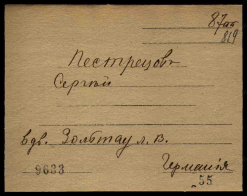 87ав
819
Пестрецовъ
Сергѣй
вдв. Зольтау л. В.
9633
Германія
55